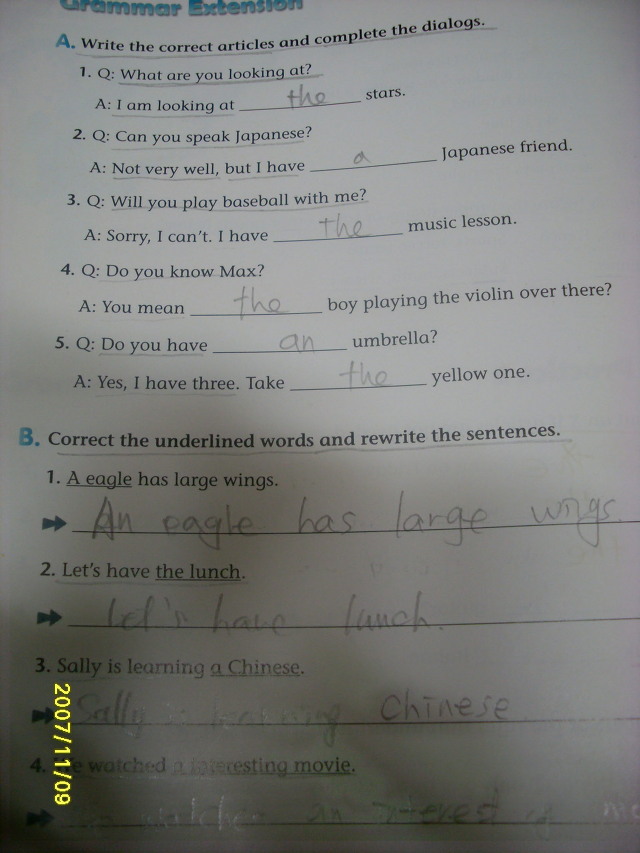 Grammar Extension
A. Write the correct articles and complete the dialogs.
1. Q: What are you looking at?
A: I am looking at the stars.
2. Q: Can you speak Japanese?
A: Not very well, but I have a Japanese friend.
3. Q: Will you play baseball with me?
A: Sorry, I can't. I have the music lesson.
4. Q: Do you know Max?
A: You mean the boy playing the violin over there?
5. Q: Do you have an umbrella?
A: Yes, I have three. Take the yellow one.
B. Correct the underlined words and rewrite the sentences.
1. A eagle has large wings.
An eagle has large wings.
2. Let's have the lunch.
Let's have lunch.
3. Sally is learning a Chinese.
Sally is learning Chinese
4. We watched a interesting movie.
an
2007/11/09